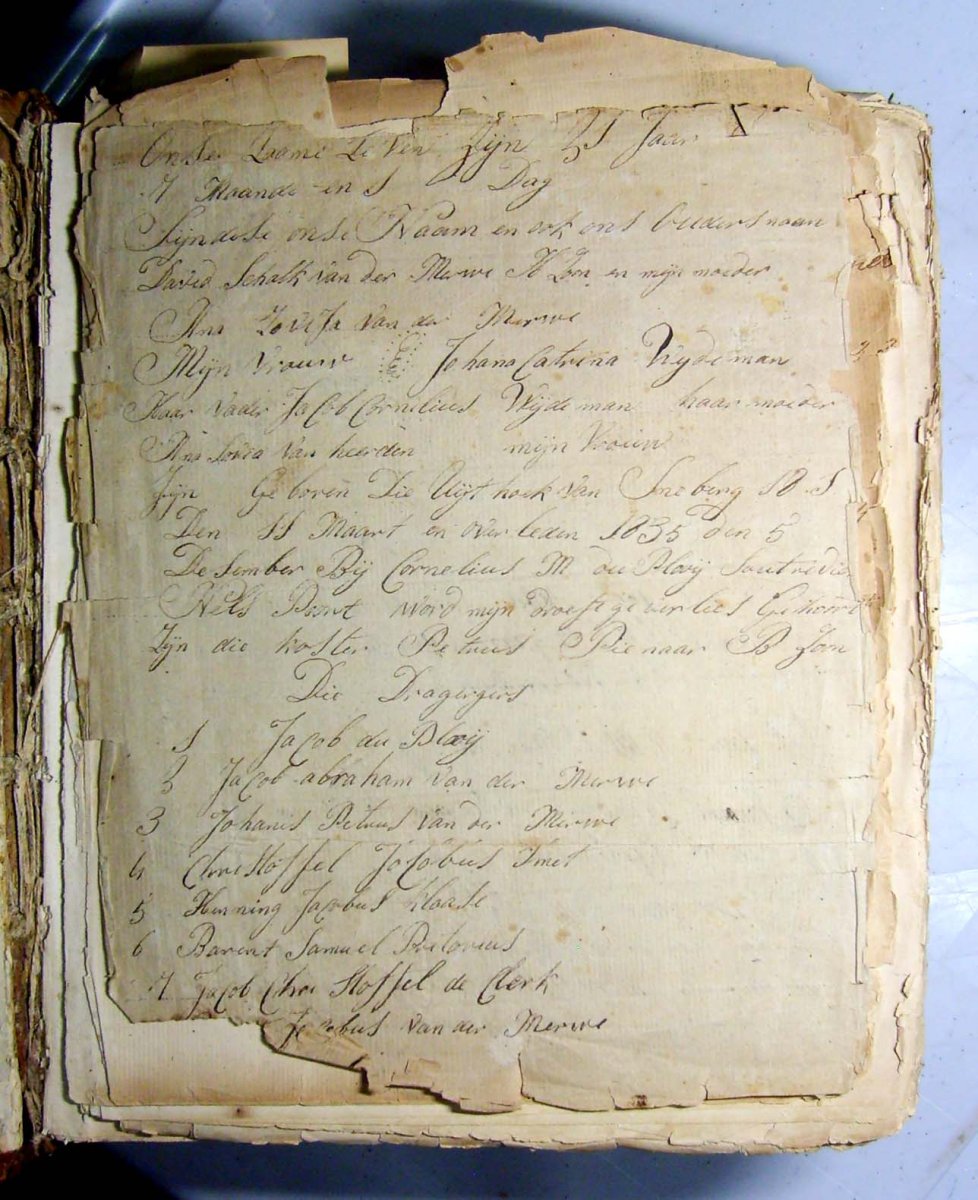 Onse Zame Leven Zijn 21 Jaar
7 Maande en 1 Dag
Sijn dese onse Naam en ook ons ouders naan
David Schalk van der Merwe Zoon en mijn moeder
Ana Lovisa van der Merwe
Mijn vrouw Johana Catrina Wydeman
Haar vader Jacob Cornelius Wijdeman haar moeder
Ana Lovisa van heerden mijn vrouw
Zijn Geboren Die Uijt hoek van Sneberg 18 1
Den 11 Maart en overleden 1835 den 5
Desember Bij Cornelius M du Plooij
Nels Poort word mijn droefege verlies Gehoort
Zijn die koster Petrus Pienaar B Zoon
Die Dragergers
1 Jacob du Plooij
2 Jacob abraham van der Merwe
3 Johanis Petrus van der Merwe
4 Christoffel Jacobus Smet
5 Henning Jacobus Klaase
6 Barent Samuel Pretorius
7 Jacob Christoffel de Clerk
Jacobus van der Merwe